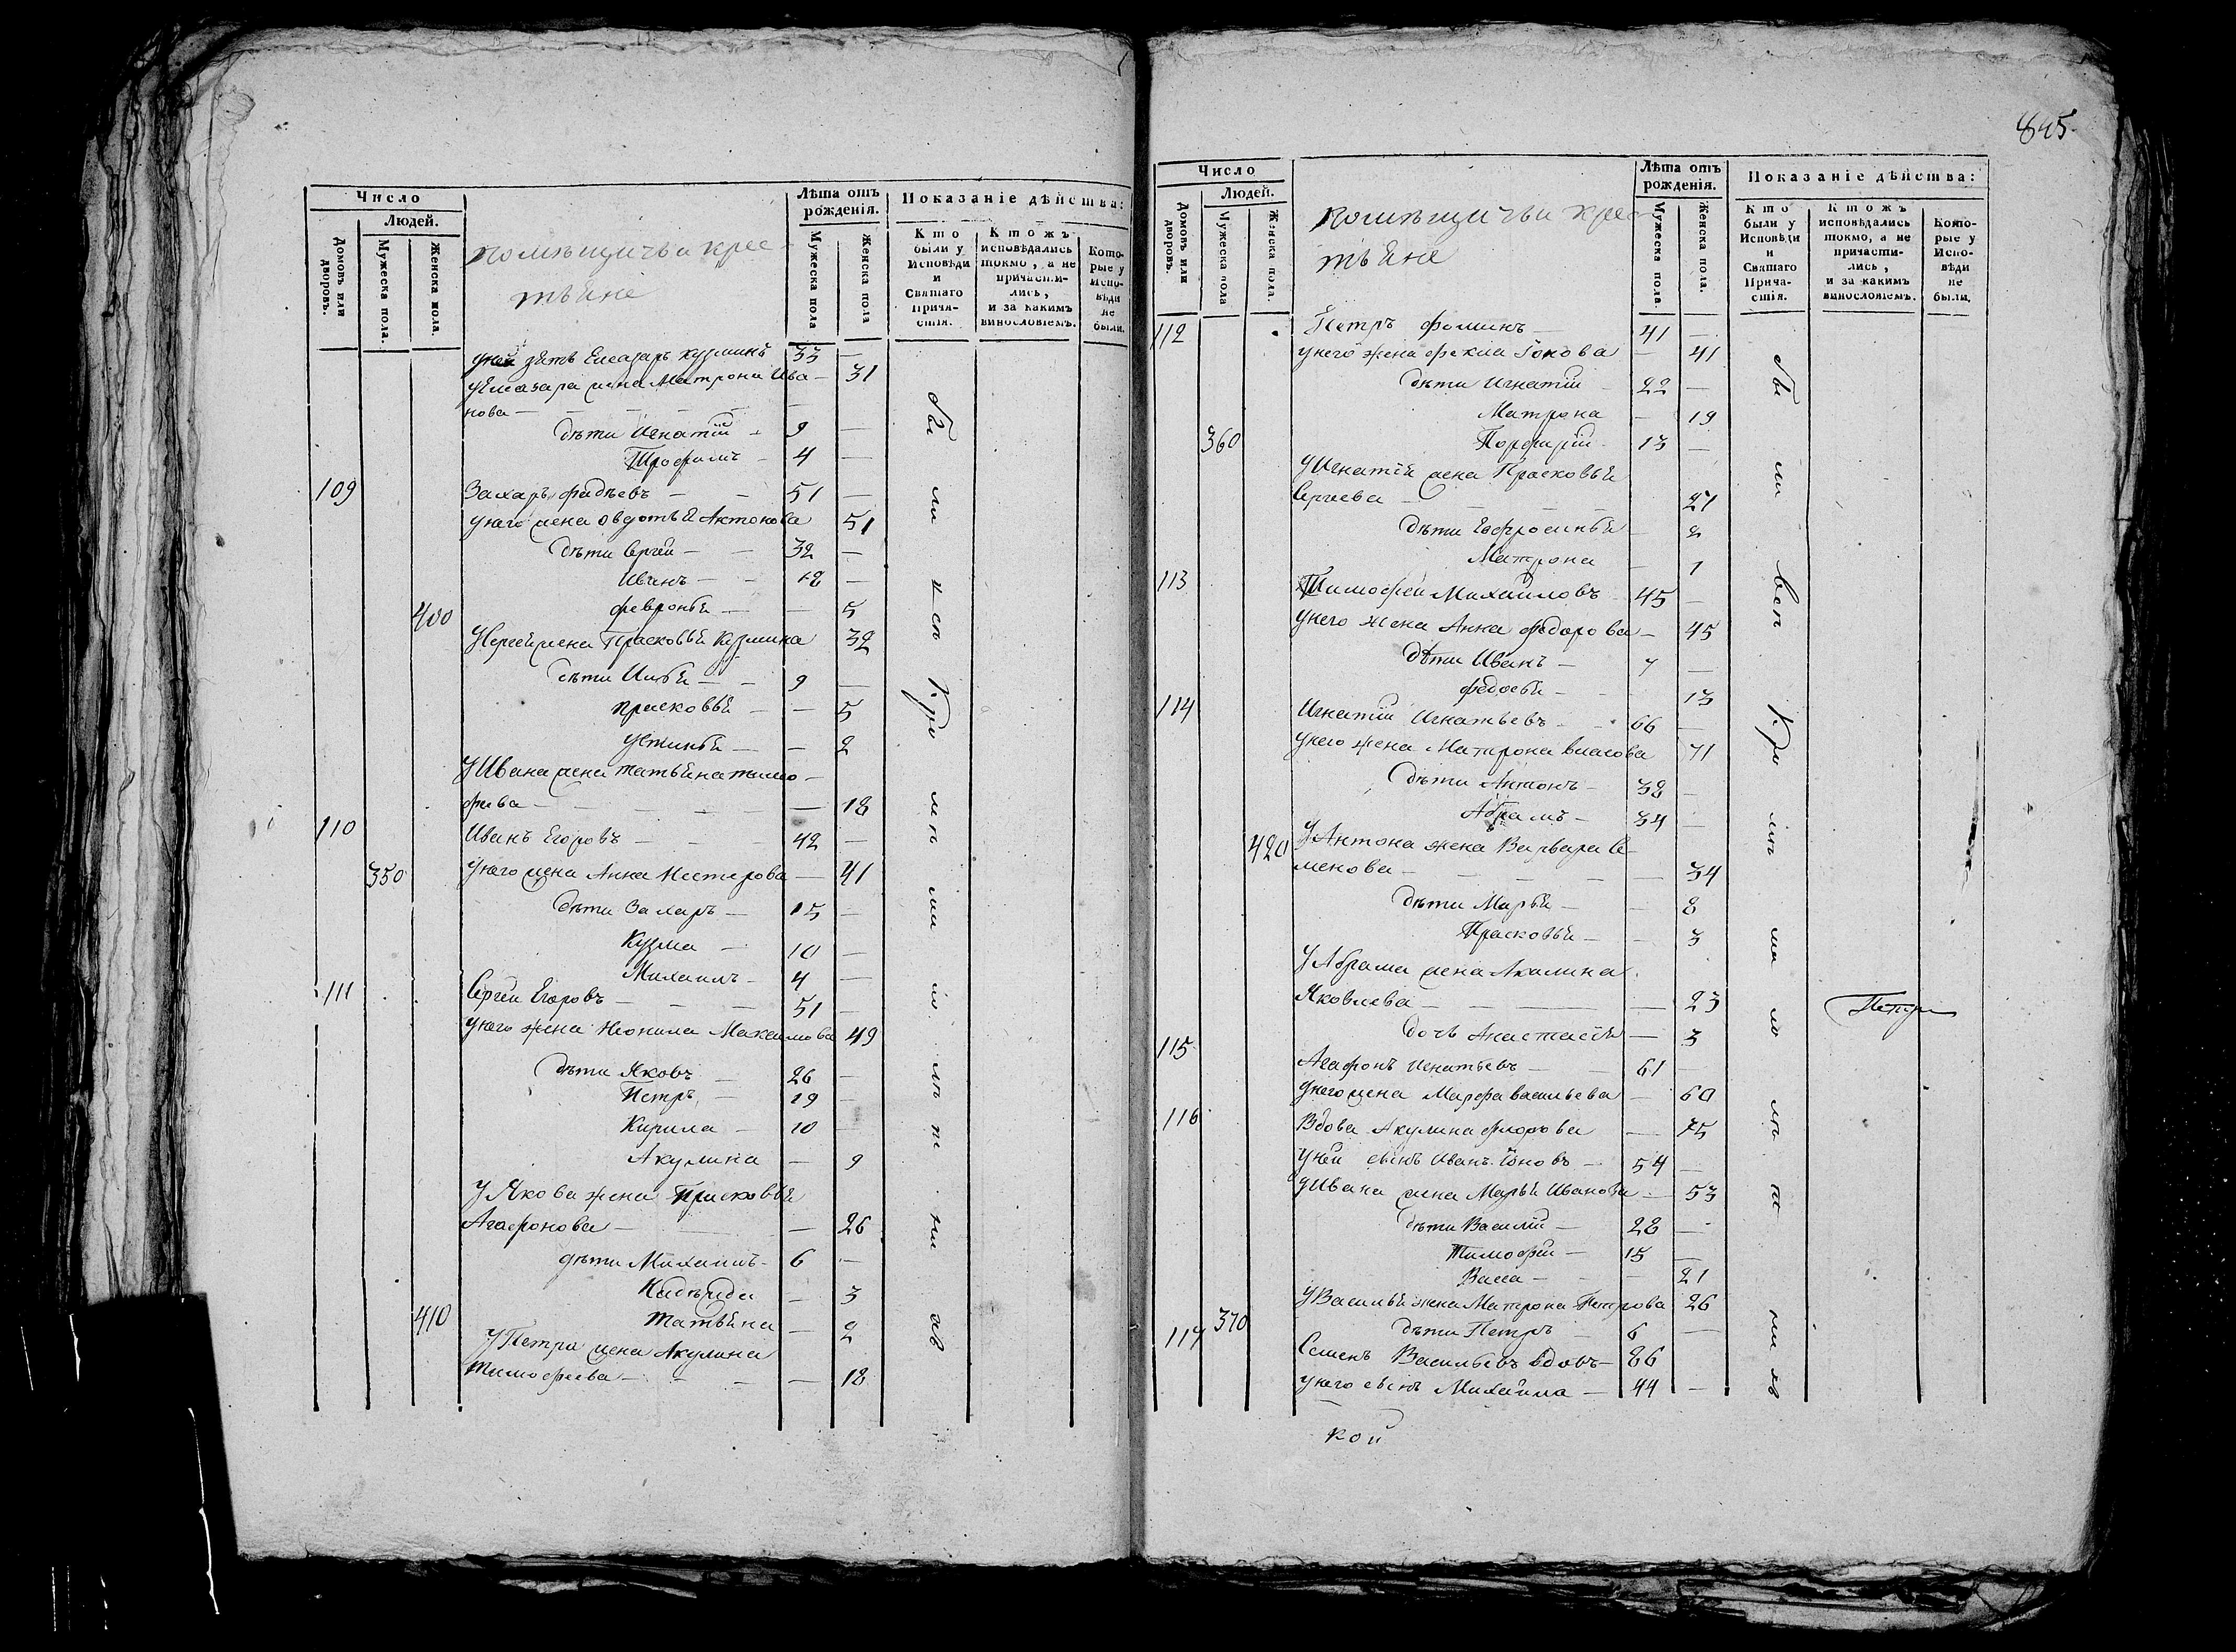 Число
Людей.
Домовъ или дворовъ.
Мужеска пола.
Женска пола.
помѣщичьи крес-
тьяне
Лѣта отъ рожденія.
Мужеска пола
Женска пола
Показаніе дѣйства:
Кто были у Исповѣди и Святаго Прича-стія.
Ктожъ исповѣдались токмо, а не причасти-лись, и за какимъ винословіемъ.
Кото-рые у Испо-вѣди не были.
у ней зять Елеазаръ Кузминъ 33 —
у Елеазара жена Матрона Ива- 31
нова —
дѣти Игнатій — 9 —
Трофимъ — 4 —
109 Захаръ Фадѣевъ — 51 —
у него жена Овдотья Антонова 51
дѣти Сергей — 32 —
Иванъ — 18 —
400 Февронья — 5
У Сергея жена Прасковья Кузмина 32
дѣти Илья — 9 —
Прасковья — 5
Устинья — 2
У Ивана жена Татьяна Тимо-
феева — 18
110 Иванъ Егоровъ — 42 —
350 у него жена Анна Нестерова — 41
дѣти Захаръ — 15 —
Кузма — 10 —
Михаилъ — 4 —
111 Сергей Егоровъ — 51 —
у него жена Неонила Максимова 49
дѣти Яковъ — 26 —
Петръ — 19 —
Кирила — 10 —
Акулина — 9
У Якова жена Прасковья
Агафонова — 26
дѣти Михаилъ — 6 —
Надѣжда — 3
410 Татьяна — 2
У Петра жена Акулина
Тимофеева — 18
бы
ли
исп
Кро
мѣ
ма
ло
лѣ
т
ни
хъ
845.
Число
Людей.
Домовъ или дворовъ.
Мужеска пола
Женска пола.
помѣщичьи крес-
тьяне
Лѣта отъ рожденія.
Мужеска пола.
Женска пола.
Показаніе дѣйства:
Кто были у Исповѣди и Святаго Прича-стія.
Ктожъ исповѣдались токмо, а не причасти-лись, и за какимъ винословіемъ.
Кото-рые у Испо-вѣди не были.
112 Петръ Фоминъ — 41 —
у него жена Фекла Іонова — 41
дѣти Игнатій — 22 —
Матрона — 19
360 Порфирій — 13 —
У Игнатія жена Прасковья
Сергеева — 21
дѣти Евфросинья — 2
Матрона — 1
113 Тимофей Михайловъ 45 —
у него жена Анна Федорова — 45
дѣти Иванъ — 7 —
Федосья — 13
114 Игнатій Игнатьевъ — 66 —
у него жена Матрона Власова 71
дѣти Антонъ — 38 —
Абрамъ — 34 —
420 У Антона жена Варвара Се-
менова — 34
дѣти Марья — 8
Прасковья — 3
У Абрама жена Акилина
Яковлева — 23
дочь Анастасія — 3
115 Агафонъ Игнатьевъ — 61 —
у него жена Марфа Васильева — 60
116 Вдова Акулина Флорова — 75
у ней сынъ Иванъ Іоновъ — 54 —
у Ивана жена Марья Иванова — 53
дѣти Василій — 28 —
Тимофей — 15 —
Васса — 21
У Василья жена Матрона Петрова 26
370 дѣти Петръ — 6 —
117 Семенъ Васильевъ вдовъ — 86
у него сынъ Михайла — 44 —
бы
ли
всѣ
Кро
мѣ
ма
ло
лѣ
т
ни
хъ
Петръ
кой